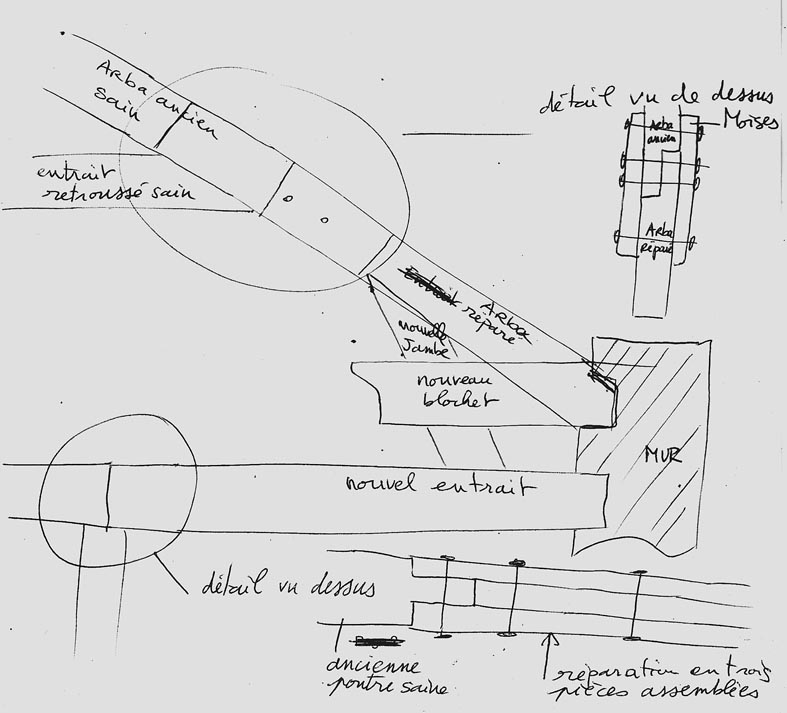 Arba ancien
sain
entrait
retroussé sain
détail vu de dessus
Moises
Arba
ancien
Arba
réparé
Arba
réparé
nouvelle
Jambe
nouveau
blochet
MUR
nouvel entrait
détail vu dessus
ancienne
poutre saine
réparation en trois
pièces assemblées